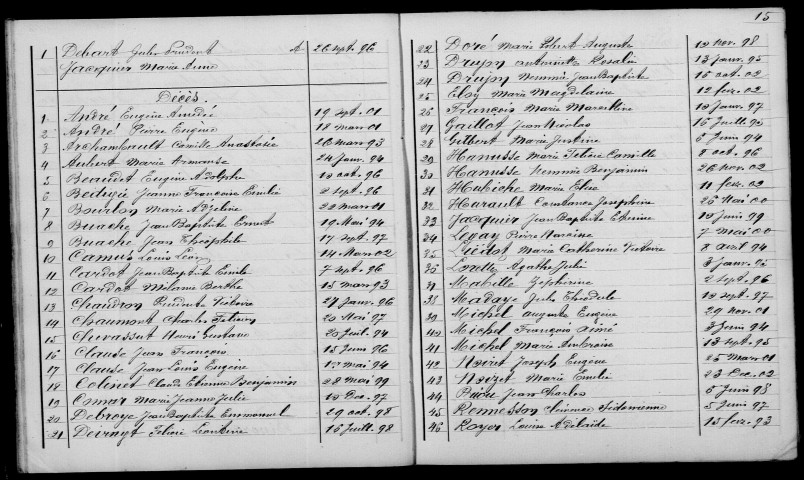 1 Debart Jules Prudent A 26 sept. 96
Jacquin Marie Anna
Décès.
1 André Eugène Amédée 19 sept. 01
2 André Pierre Eugène 18 mars 01
3 Archambault Camille Anastasie 26 mars 93
4 Aubert Marie Armanse 24 janv. 94
5 Beaudet Eugène Adolphe 12 oct. 96
6 Jeanne Françoise Emilie 2 sept. 96
7 Bourlon Marie Adeline 22 mars 01
8 Buache Jean Baptiste Ernest 19 Mai 94
9 Buache Jean Théophile 17 sept. 97
10 Camus Louis Léon 14 Mars 02
11 Cardot Jean Baptiste Emile 7 sept. 96
12 Cardot Mélanie Berthe 15 mars 93
13 Chaudron Prudente Victoire 27 janv. 96
14 Chaumont Charles 20 Mai 97
15 Chevassut Henri Gustave 20 Juil. 94
16 Clause Jean François 15 Juin 96
17 Clause Jean Louis Eugène 12 mai 94
18 Colinet Claude Etienne Benjamin 28 mai 99
19 Marie Jeanne Julie 12 Déc. 97
20 Debroye Jean Baptiste Emmanuel 29 oct. 98
21 Félicie Léontine 16 Juill. 98
15
22 Doré Marie Auguste 12 nov. 98
23 Drujon Antoinette Rosalie 13 Janv. 95
24 Drujon Nemmie Jean Baptiste 16 oct. 02
25 Eloy Marie Magdelaine 12 fev. 02
26 François Marie Marcelline 10 Janv. 97
27 Gaillot Jean Nicolas 16 Juill. 95
28 Gilbert Marie Justine 6 Juin 94
29 Hanusse Marie Camille 8 oct. 96
30 Hanusse Nemmie Benjamin 26 nov. 02
31 Hubiche Marie Elise 11 fev. 02
32 Harault Constance Josephine 26 Mai 00
33 Jacquin Jean Baptiste Etienne 10 Juin 99
34 Pierre Narcisse 7 mai 00
35 Marie Catherine Victoire 8 avril 94
36 Agathe Julie 3 Janv. 02
37 Mabille Zephirine 2 sept. 96
38 Jules Théodule 12 sept. 97
39 Michel Auguste Eugène 29 nov. 01
40 Michel François Aimé 3 Juin 94
41 Michel Marie Ambroise 13 sept. 95
42 Noizet Joseph Eugène 25 Mars 01
43 Noizet Marie Emilie 23 Dec. 02
44 Jean Charles 5 Juin 98
45 Remesson Clemence Sidonienne 5 Juin 97
46 Royer Louise Adelaide 15 fev. 93